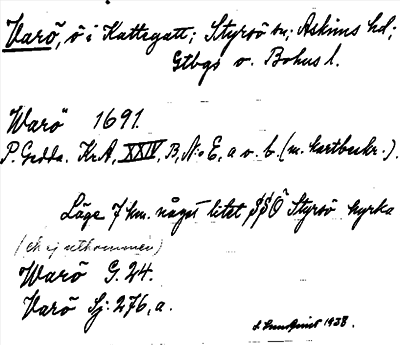 Varö, ö i Kattegatt; Styrsö sn; Askims hd;
Gtbgs o. Bohus l.
Warö 1691.
P. Gedda. KrA, XXIV, B, N:o E, a o. b. (m. kartbeskr.).
Läge 7 km. något litet SSÖ Styrsö kyrka
(ek. ej utkommen)
Warö G. 24.
Varö Sj: 276, a.
1938.